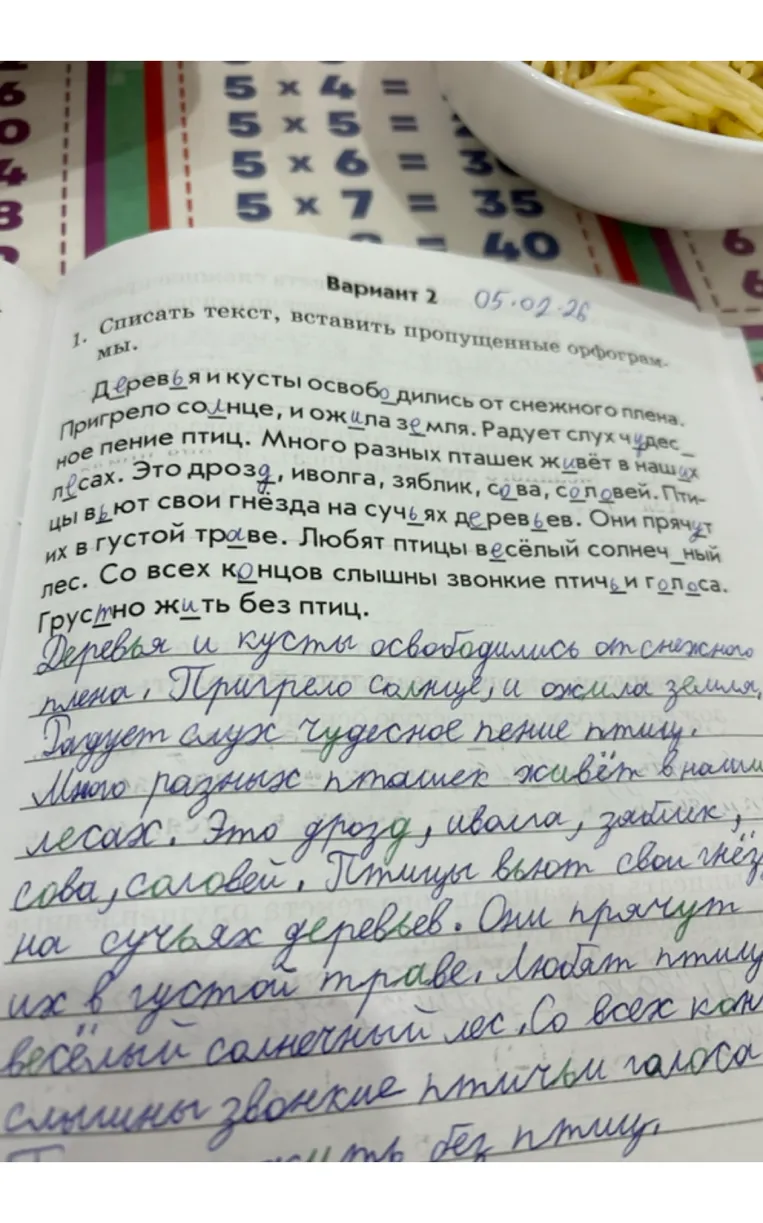 6
5 x 4 =
0
5 x 5 =
4
5 x 6 = 30
8
5 x 7 = 35
= 40
6
6
Вариант 2 05.02.26
1. Списать текст, вставить пропущенные орфограм-
мы.
Деревья и кусты освободились от снежного плена.
Пригрело солнце, и ожила земля. Радует слух чудес_
ное пение птиц. Много разных пташек живёт в наших
лесах. Это дрозд, иволга, зяблик, сова, соловей. Пти-
цы вьют свои гнёзда на сучьях деревьев. Они прячут
их в густой траве. Любят птицы весёлый солнеч_ный
лес. Со всех концов слышны звонкие птичьи голоса.
Грустно жить без птиц.
Деревья и кусты освободились от снежного
плена. Пригрело солнце, и ожила земля.
Радует слух чудесное пение птиц.
Много разных пташек живёт в наших
лесах. Это дрозд, иволга, зяблик,
сова, соловей. Птицы вьют свои гнёз
на сучьях деревьев. Они прячут
их в густой траве. Любят птицы
весёлый солнечный лес. Со всех кон
слышны звонкие птичьи голоса
жить без птиц.